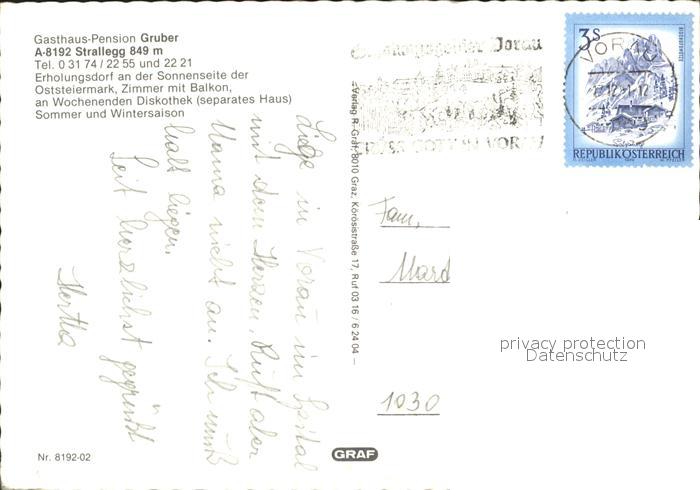 Gasthaus-Pension Gruber
A-8192 Strallegg 849 m
Tel. 0 31 74 / 22 55 und 22 21
Erholungsdorf an der Sonnenseite der
Oststeiermark, Zimmer mit Balkon,
an Wochenenden Diskothek (separates Haus)
Sommer und Wintersaison
Liege in Vorau im Spital
mit dem Herzen, Ruft aber
Mama nicht an. Ich muß
halt liegen.
Seit herzlichst gegrüßt
Hertha
Verlag R. Graf, 8010 Graz, Körösistraße 17, Ruf 03 16 / 6 24 04 –
Vorau
GOTT IN VORAU
VORAU
3 S
REPUBLIK ÖSTERREICH
Fam.
1030
privacy protection
Datenschutz
Nr. 8192-02
GRAF